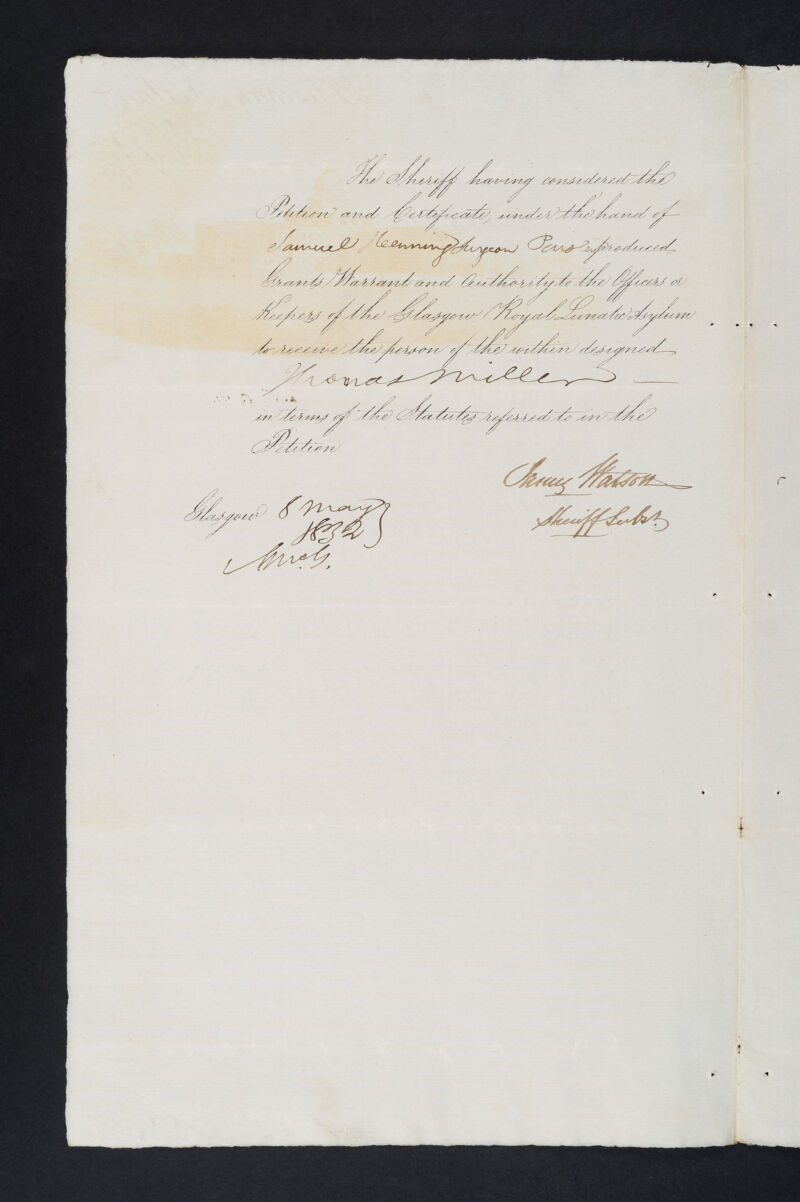 The Sheriff having considered the
Petition and Certificate, under the hand of
Samuel Henning Surgeon produced
Grants Warrant and Authority to the Officers or
Keepers of the Glasgow Royal Lunatic Asylum
to receive the person of the within designed
Thomas Miller
in terms of the Statutes referred to in the
Petition
James Watson
Sheriff Subst.
Glasgow 8 May
1832